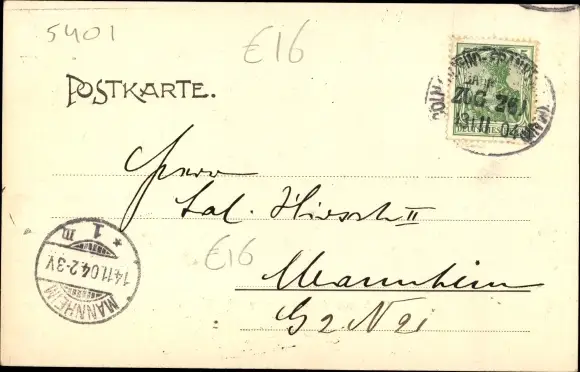 5401
€16
POSTKARTE.
DEUTSCHES
ZUG 261
13 11 04
Herrn
Sal. Hirsch II
€16
Mannheim
G 2 N 21
* 1 m
14.11.04.2-3V.
MANNHEIM